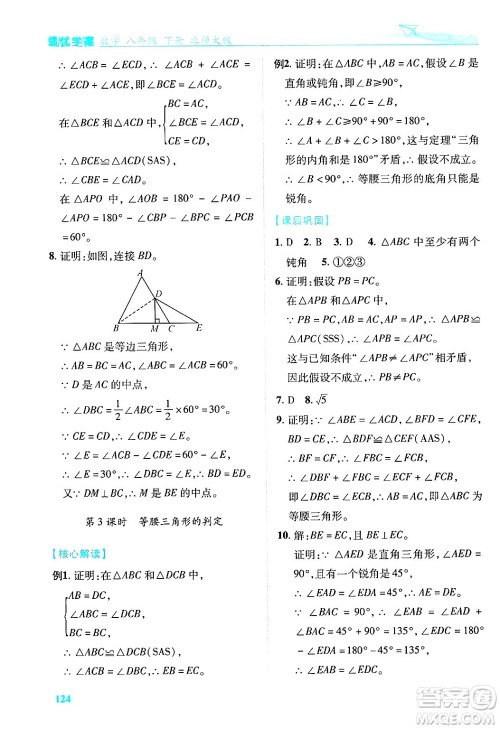 绩优学案 数学 八年级 下册 北师大版
∴ ∠ACB = ∠ECD.
∴ ∠ACB + ∠ACE = ∠ECD + ∠ACE.
∴ ∠BCE = ∠ACD.
在△BCE和△ACD中, { BC = AC,
∠BCE = ∠ACD,
CE = CD,
∴ △BCE≌△ACD(SAS).
∴ ∠CBE = ∠CAD.
在△APO中, ∠AOB = 180° − ∠PAO −
∠APO = 180° − ∠CBE − ∠BPC =
60°.
8. 证明:如图,连接 BD.
A
D
B
M
C
E
∵ △ABC 是等边三角形,
∴ AB = BC = AC, ∠ABC = ∠ACB = 60°.
∵ D是AC的中点,
∴ ∠DBC = 1/2 ∠ABC = 1/2 × 60° = 30°.
∵ CE = CD, ∴ ∠CDE = ∠E.
∵ ∠E = ∠ACB − ∠CDE = ∠ACB − ∠E,
∴ ∠E = 30°. ∴ ∠DBC = ∠E. ∴ BD = DE.
又∵ DM ⊥ BC, ∴ M是BE的中点.
第3课时 等腰三角形的判定
【核心解读】
例1. 证明:在△ABC和△DCB中,
{ AB = DC,
∠ABC = ∠DCB,
BC = BC,
∴ △ABC≌△DCB(SAS).
∴ ∠ACB = ∠DBC. ∴ OB = OC.
例2. 证明:在△ABC中,AB = AC,假设∠B
是直角或钝角,即∠B≥90°,
∵ AB = AC, ∴ ∠B = ∠C≥90°.
∴ ∠B + ∠C≥180°.
∴ ∠A + ∠B + ∠C>180°,这与定理“三角
形的内角和等于180°”相矛盾.
∴ 假设不成立.
∴ ∠B<90°. ∴ 等腰三角形的底角只能是
锐角.
【课后巩固】
1. D 2. B 3. D 4. △ABC 中至少有两个
钝角 5. ①②③
6. 证明:假设 PB = PC.
在△APB和△APC中, ∵ AB = AC,
PB = PC, AP = AP, ∴ △APB≌
△APC(SSS), ∴ ∠APB = ∠APC.
这与已知条件“∠APB≠∠APC”相矛盾,
∴ 假设不成立. ∴ PB≠PC.
7. D 8. √5
9. 证明: ∵ ∠ABE = ∠ACD, ∠BFD = ∠CFE,
BD = CE, ∴ △BDF≌△CEF(AAS).
∴ BF = CF. ∴ ∠FBC = ∠FCB.
∴ ∠ABC = ∠ACB. ∴ AB = AC.
∴ △ABC是等腰三角形.
10. 解:BE = EC,且BE⊥EC. 证明如下:
∵ △AED 是直角三角形, ∠AED =
90°,且有一个锐角是45°,
∴ ∠EAD = ∠EDA = 45°.
∴ AE = DE.
∵ ∠BAC = 90°, ∴ ∠EAB = ∠EAD +
∠BAC = 45° + 90° = 135°, ∠EDC =
180° − ∠EDA = 180° − 45° = 135°.
∴ ∠EAB = ∠EDC.
124